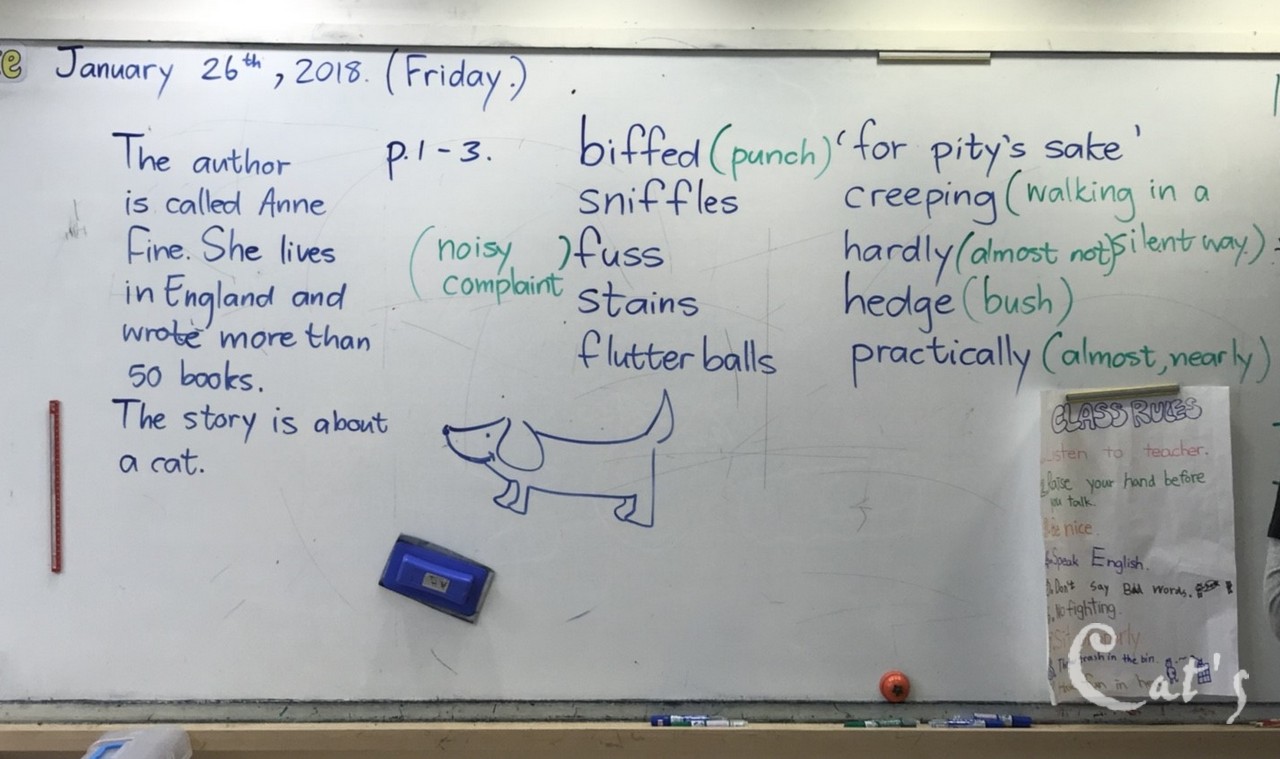 January 26th, 2018. (Friday.)
The author
is called Anne
Fine. She lives
in England and
wrote more than
50 books.
The story is about
a cat.
p.1-3.
biffed (punch)
sniffles
(noisy complaint) fuss
stains
flutter balls
‘for pity's sake’
creeping (walking in a silent way.)
hardly (almost not)
hedge (bush)
practically (almost, nearly)
CLASS RULES
Listen to teacher.
Raise your hand before
you talk.
Be nice.
Speak English.
Don't say Bad words.
No fighting.
trash in the bin.
in
Cat's